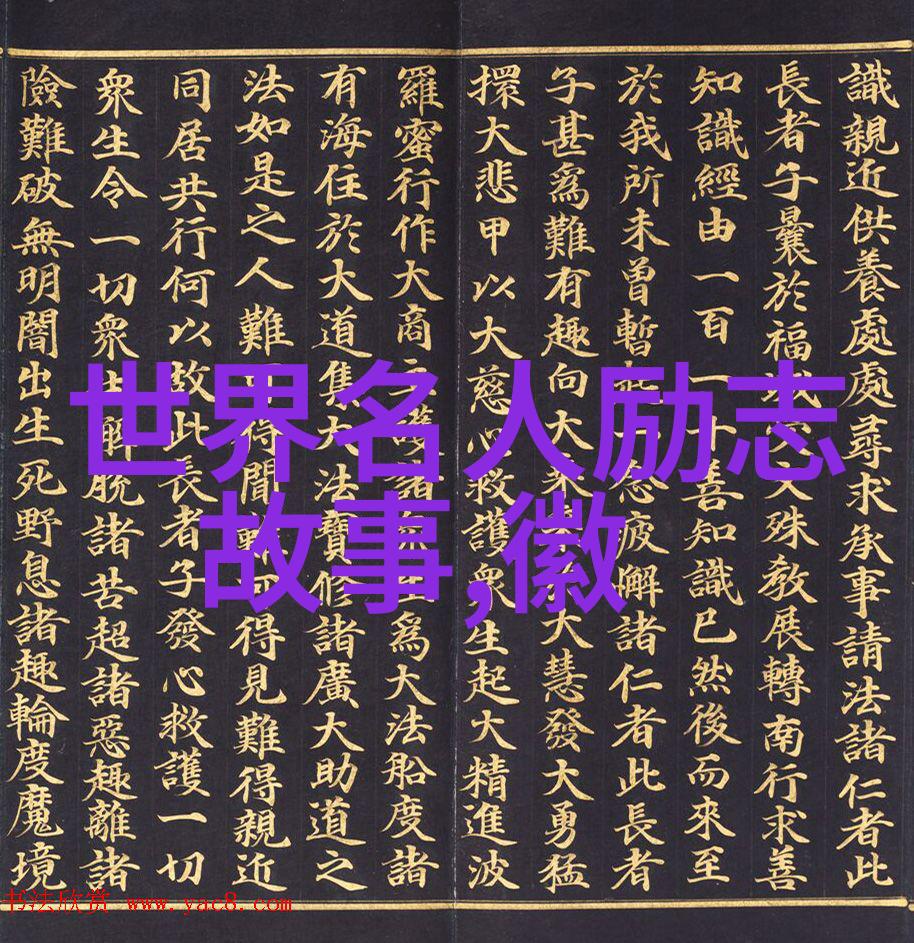 識親近供養處處尋求承事請法諸仁者此
長者子曩於福城殊教展轉南行求善
知識經由一百一十善知識已然後而來至
於我所未曾暫念疲懈諸仁者此長者
子甚爲難有趣向大乘大慧發大勇猛
擐大悲甲以大慈心救護衆生起大精進波
羅蜜行作大商主護諸生爲大法船度諸
有海住於大道集大法寶修諸廣大助道之
法如是之人難可得聞難可得見難得親近
同居共行何以故此長者子發心救護一切
衆生令一切衆生解脫諸苦超諸惡趣離諸
險難破無明闇出生死野息諸趣輪度魔境
世界名人励志
故事,徽
书法欣赏 www.yac8.com